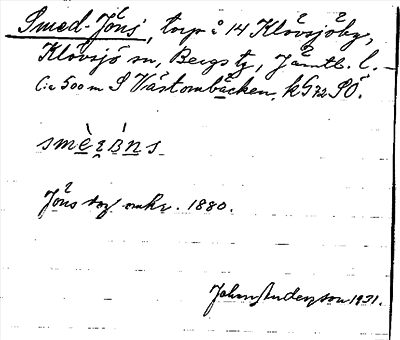 Smed-Jöns, torp å 14 Klövsjöby,
Klövsjö sn, Bergs tg, Jämtl. l. –
C:a 500 m S Västombäcken, kG72 SO.
Jöns dog omkr. 1880.
Johan Anderson 1931.